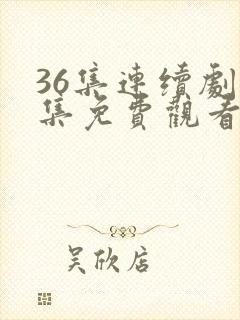 36集連續劇
集免費觀看
吴欣店